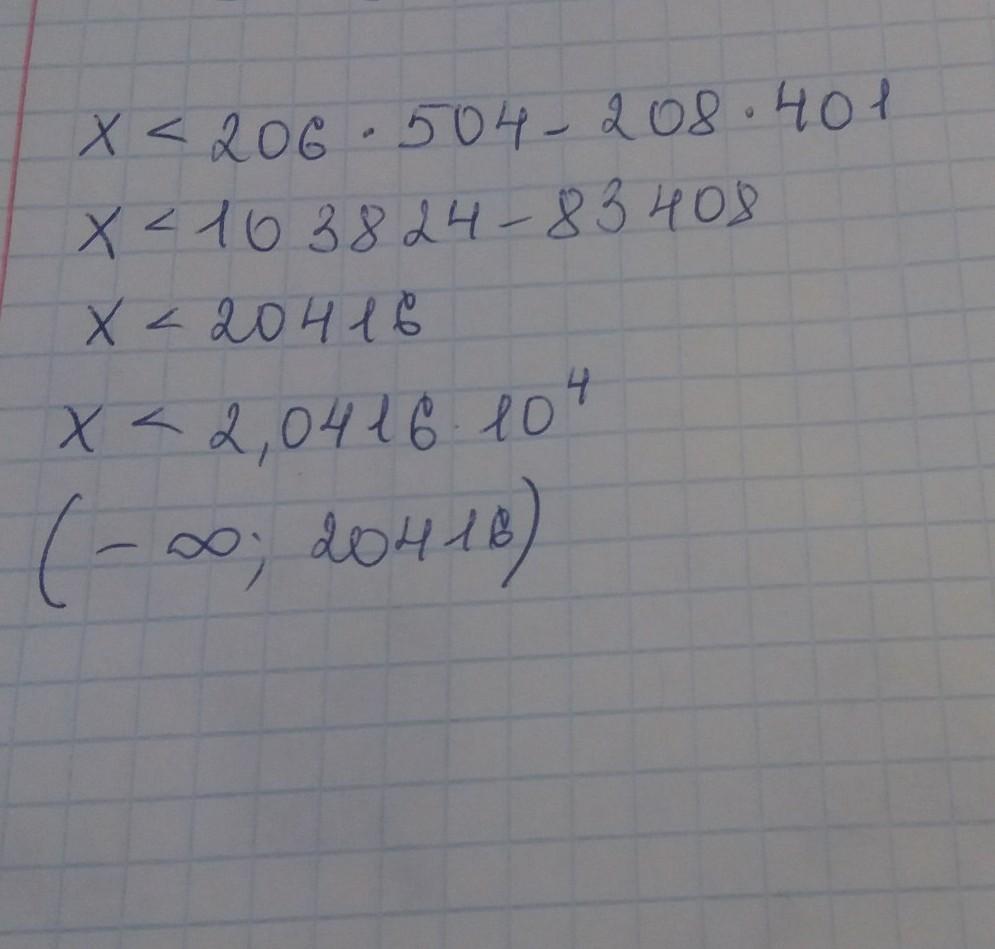 x < 206 · 504 - 208 · 401
x < 103824 - 83408
x < 20416
x < 2,0416 · 10⁴
(-∞; 20416)